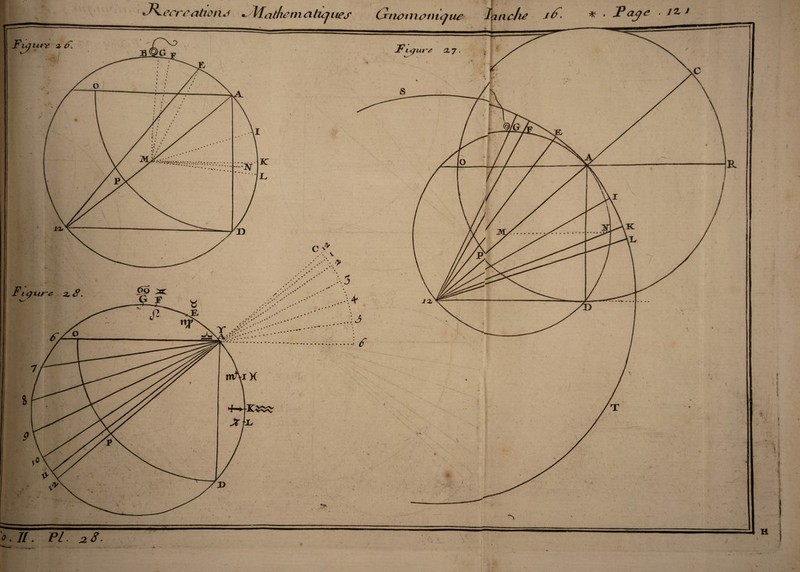 Recreations Mathematiques Gnomonique Planche 16. * . Page . 121
Figure 26.
B G F
E
O
A
I
M
K
N
L
P
12
D
Figure 27.
C
S
G F
E
O
A
R
I
M
N
K
L
P
12
D
T
Figure 28.
C 12
1
2
3
4
5
6
G F
E
♍
6
O
♎
7
♏ I ♓
8
♐ K ♒
♑ L
9
P
10
11
12
D
o. II. Pl. 28.
H